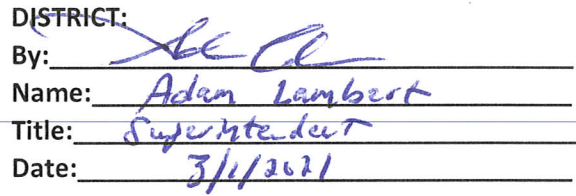 DISTRICT:
By:
Name: Adam Lambert
Title: Superintendent
Date: 3/1/2021